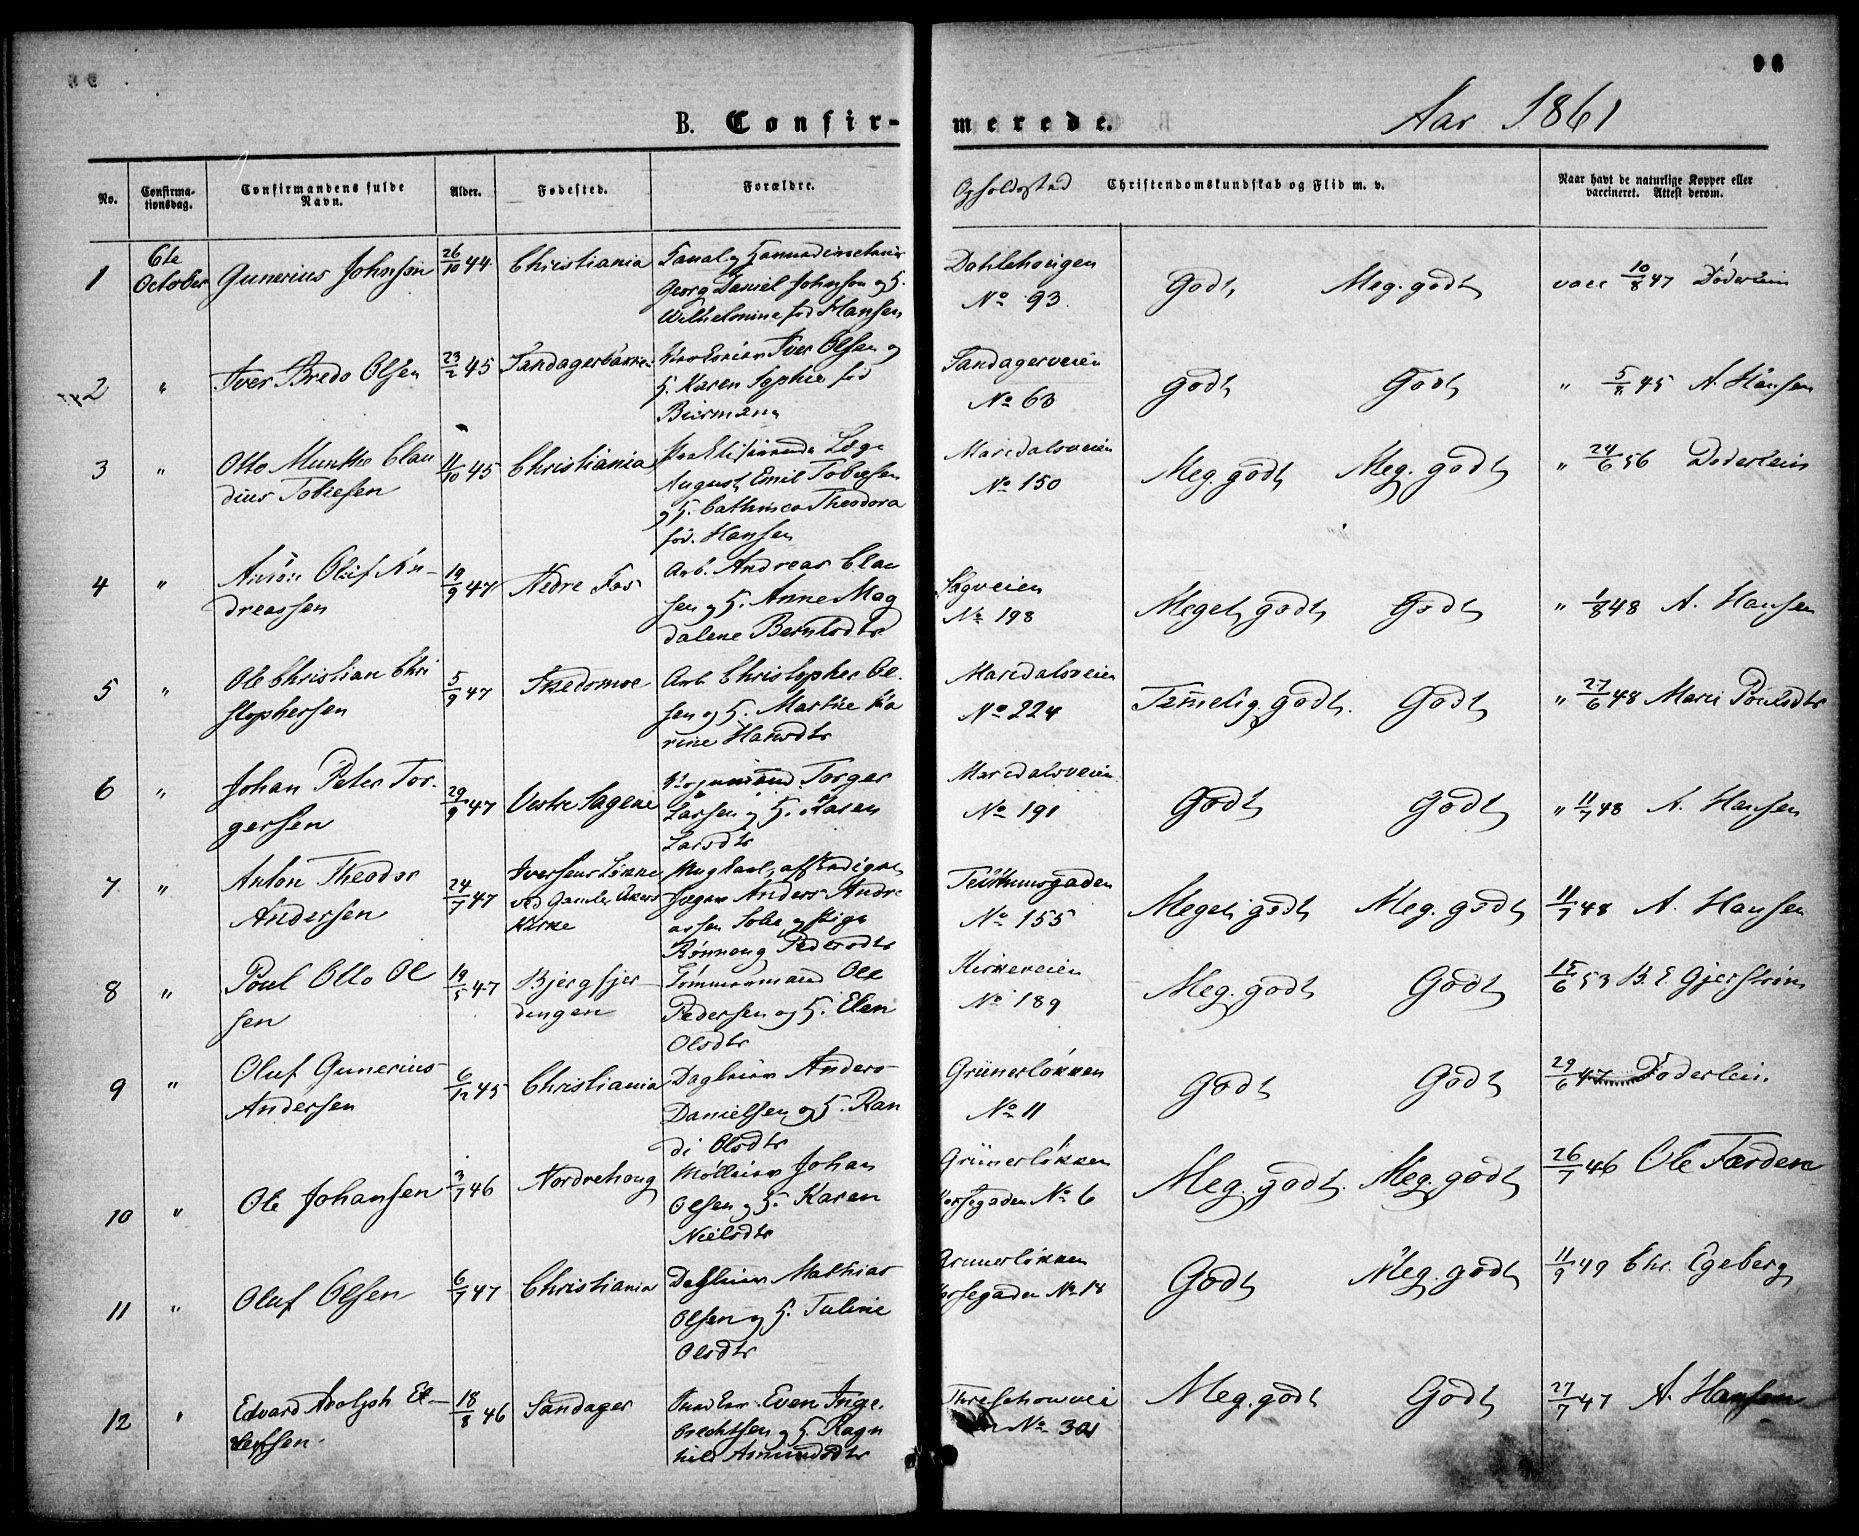 96
B. Confirmerede.
Aar 1861
No.
Confirmationsdag.
Confirmandens fulde Navn.
Alder.
Fødested.
Forældre.
Opholdssted
Christendomskundskab og Flid m. v.
Naar havt de naturlige Kopper eller vaccineret. Attest derom.
1 6te October Gunerius Johnson 26/10 44 Christiania
Georg Daniel Johnson og H.
Wilhelmine fød Hansen
Dahlehougen
No 93. Godt Meg. godt vacc 10/8 47 Døderlein
2 " Iver Bredo Olsen 23/2 45 Sandagerbakken
Iver Olsen og
H. Karen Sophie fød
Biermann
Sandagerveien
No 63 godt Godt " 5/8 45 A. Hansen
3 " Otto Munthe Clau
dius Tobiesen 11/10 45 Christiania
Praktiserende Læge
August Emil Tobiesen
og H. Cathinca Theodora
fød. Hansen
Maridalsveien
No 150 Meg. godt Meg. godt " 24/6 56 Døderlein
4 " Anton Oluf An-
dreassen 19/9 47 Nedre Fos
Arb. Andreas Clau
sen og H. Anne Mag
dalene Berntsdtr
Sagveien
No 198 Meget godt Godt " 1/8 48 A. Hansen
5 " Ole Christian Chri
stophersen 5/9 47 Skedsmoe
Arb. Christopher Ol.
sen og H. Marthe Ka
rine Hansdtr
Maridalsveien
No 224 Temelig godt. Godt " 27/6 48 Marie Poulsdtr
6 " Johan Peter Tor-
gersen 29/9 47 Vestre Sagene
Torger
Larsen og H. Karen
Larsdtr
Maridalsveien
No 191 Godt Godt " 11/7 48 A. Hansen
7 " Anton Theodor
Andersen 24/7 47 Iversens Løkke
ved Gamle Akers
Kirke
Ungkarl, afskediget
Jæger Anders Andre
assen Solie og Pige
Rønnoug Pedersdtr
Teisthunsgaden
No 155 Meget godt Meg. godt 11/7 48 A. Hansen
8 " Poul Otto Ol
sen 19/5 47 Bjergfjer-
dingen
Tømmermand Ole
Pedersen og H. Elen
Olsdtr
Kirkeveien
No 189 Meg. godt Godt 15/6 53 B. E. Gjerstrøm
9 " Oluf Gunerius
Andersen 6/12 45 Christiania
Dagleier Anders
Danielsen og H. Ran
di Olsdtr
Grünerløkken
No 11 Godt Godt 29/6 47 Døderlein
10 " Ole Johansen 3/7 46 Nordrehoug
Møllerier Johan
Olsen og H. Karen
Nielsdtr
Grünerløkken
Korsegaden No 6 Meg. godt. Meg. godt 26/7 46 Ole Færden
11 " Oluf Olsen 6/7 47 Christiania
Dagleier Mathias
Olsen og H. Juline
Olsdtr
Grünerløkken
Korsegaden No 18 Godt Meg. godt 11/9 49 Chr. Egeberg
12 " Edvard Adolph
18/8 46 Sandager
Even Inge
brechtsen og H. Ragn
hild Asmundsdtr
No 301 Meg. godt Godt 27/7 47 A. Hansen